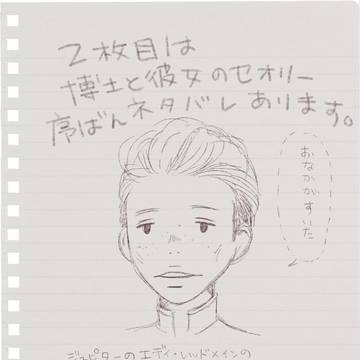 2枚目は
博士と彼女のセオリー
序ばんネタバレあります。
おなかがすいた
ジュピターのエディ・レッドメインの